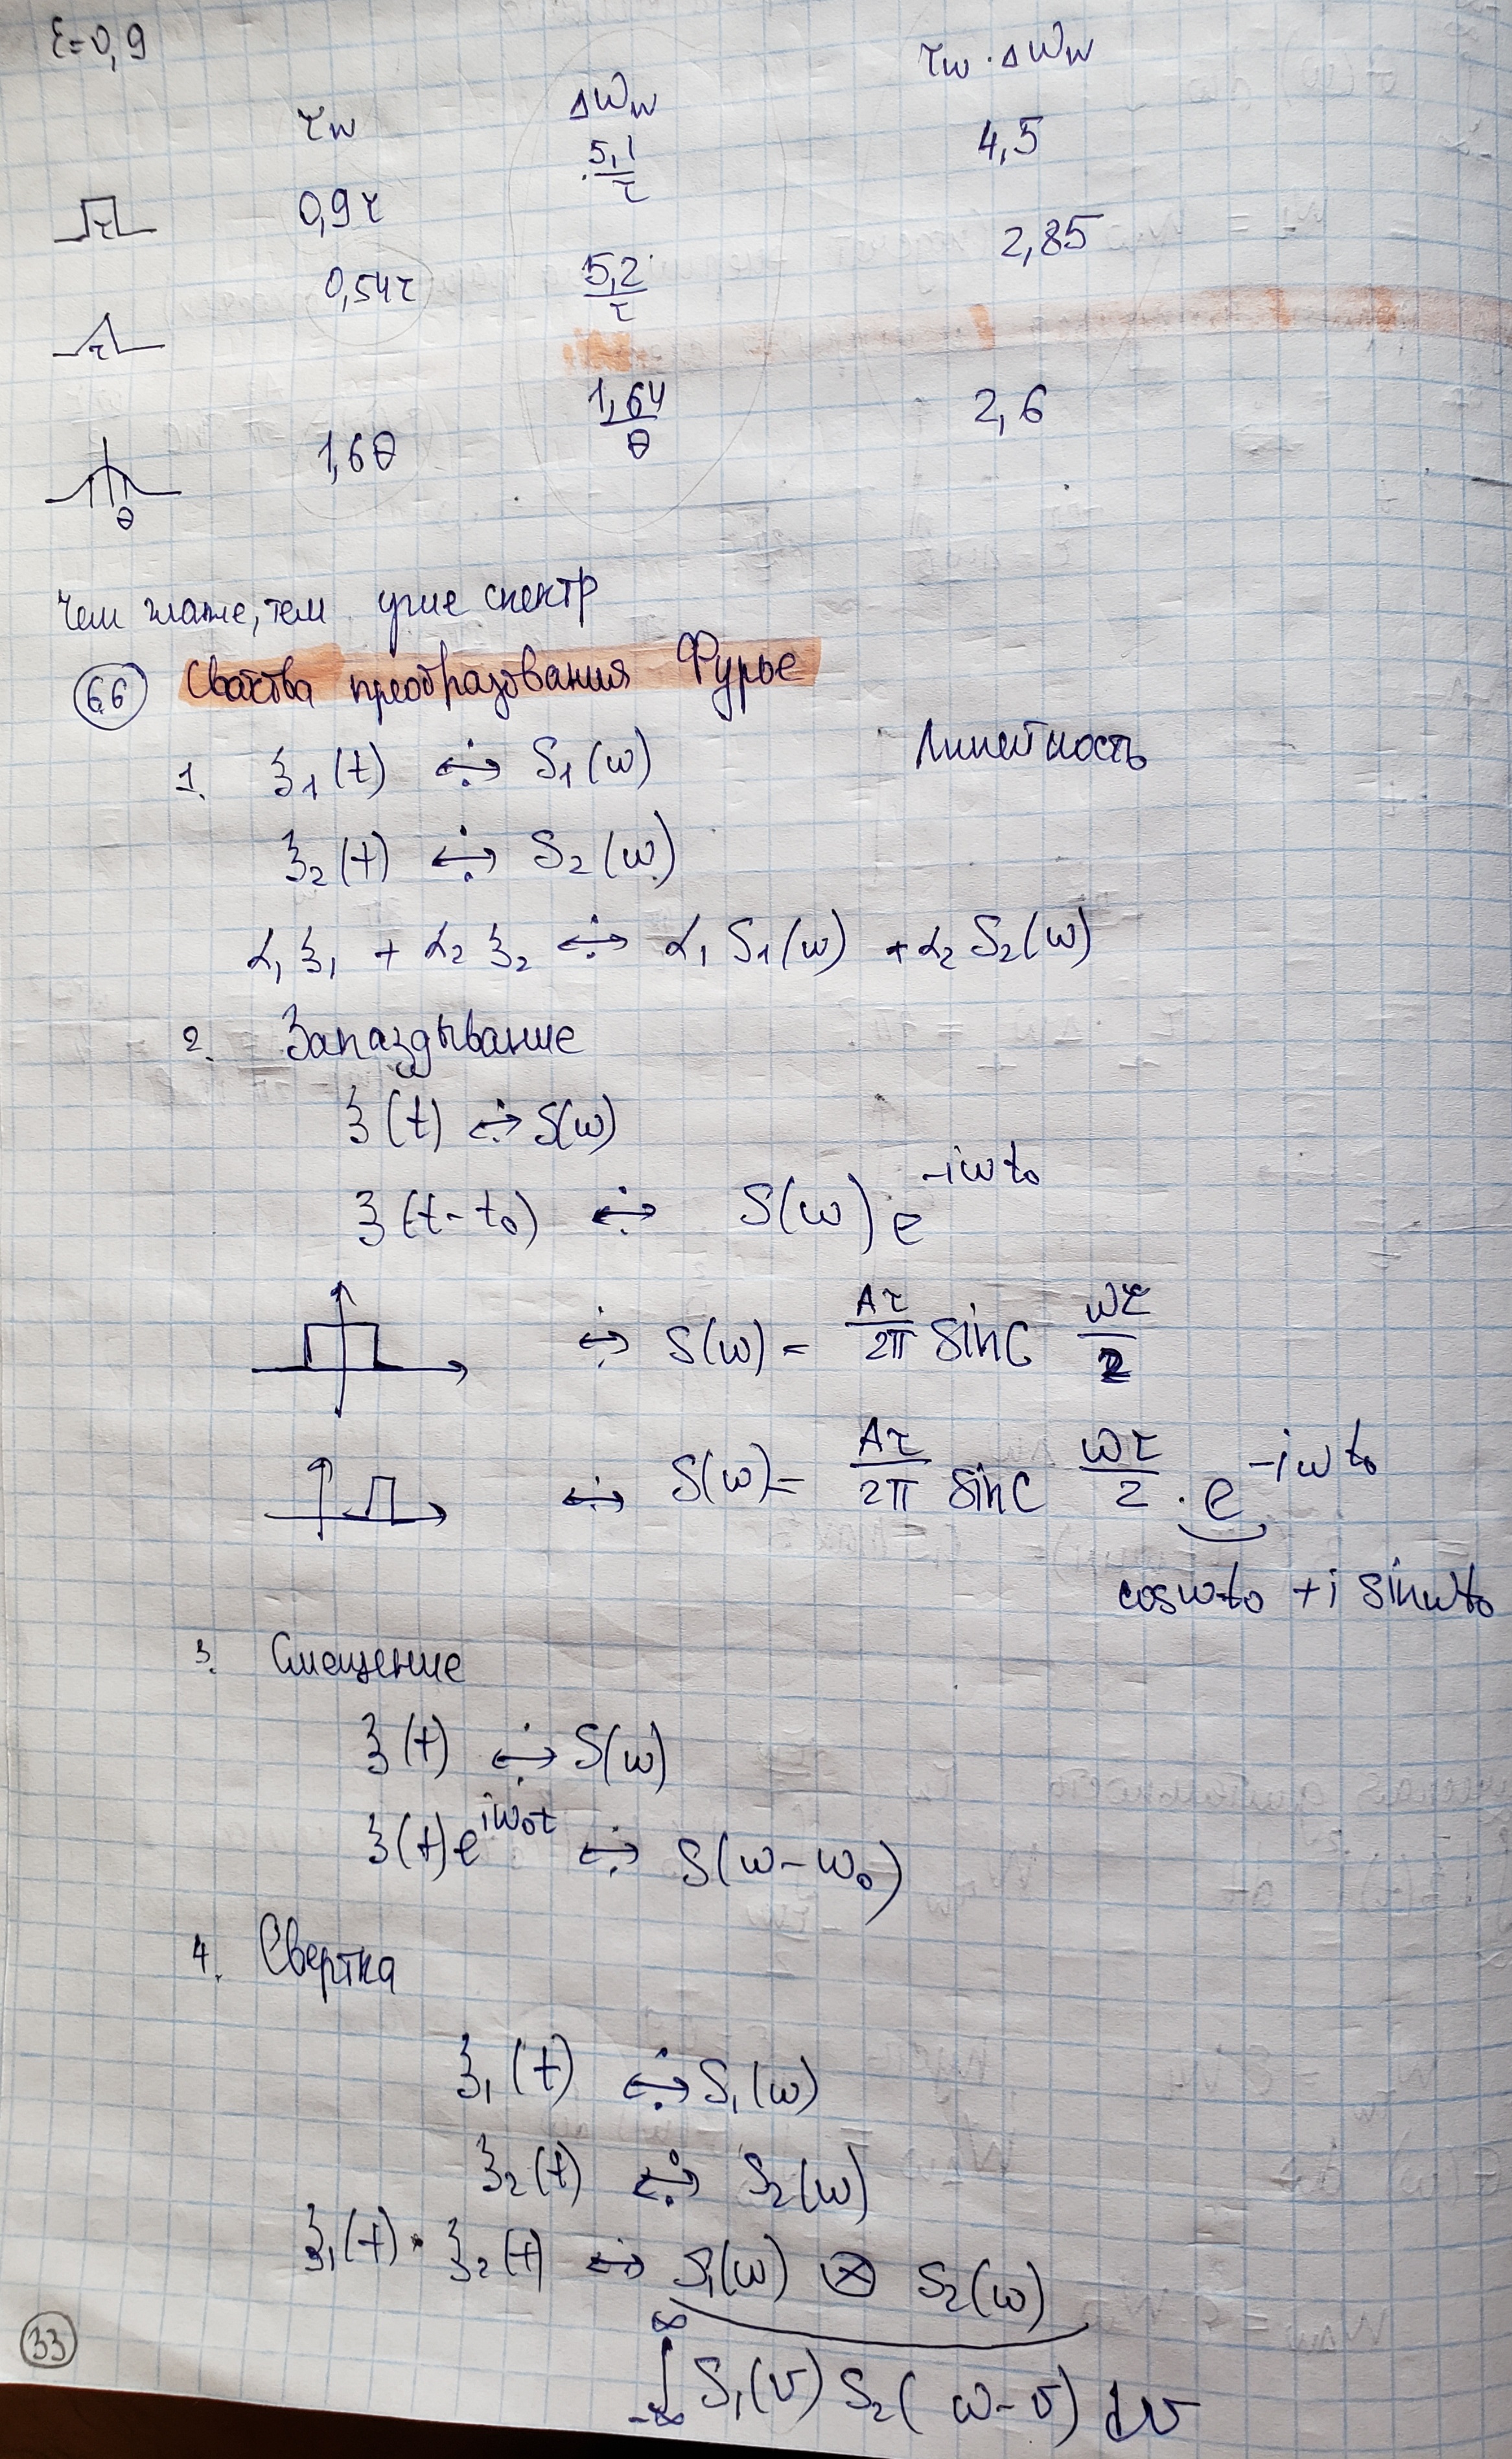 ε=0,9
τw ΔWw τw · ΔWw
0,9τ 5,1/τ 4,5
0,54τ 5,2/τ 2,85
1,6θ 1,64/θ 2,6
τ
τ
θ
Чем глаже, тем уже спектр
66 Свойства преобразования Фурье
1. ξ₁(t) ↔ S₁(ω) Линейность
ξ₂(t) ↔ S₂(ω)
α₁ξ₁ + α₂ξ₂ ↔ α₁S₁(ω) + α₂S₂(ω)
2. Запаздывание
ξ(t) ↔ S(ω)
ξ(t-t₀) ↔ S(ω) e^(-iωt₀)
↔ S(ω) = Aτ/2π sinc ωτ/2
↔ S(ω) = Aτ/2π sinc ωτ/2 · e^(-iωt₀)
cosωt₀ + i sinωt₀
3. Смещение
ξ(t) ↔ S(ω)
ξ(t)e^(iω₀t) ↔ S(ω-ω₀)
4. Свертка
ξ₁(t) ↔ S₁(ω)
ξ₂(t) ↔ S₂(ω)
ξ₁(t) · ξ₂(t) ↔ S₁(ω) ⊗ S₂(ω)
∫_{-∞}^{∞} S₁(υ) S₂(ω-υ) dυ
33